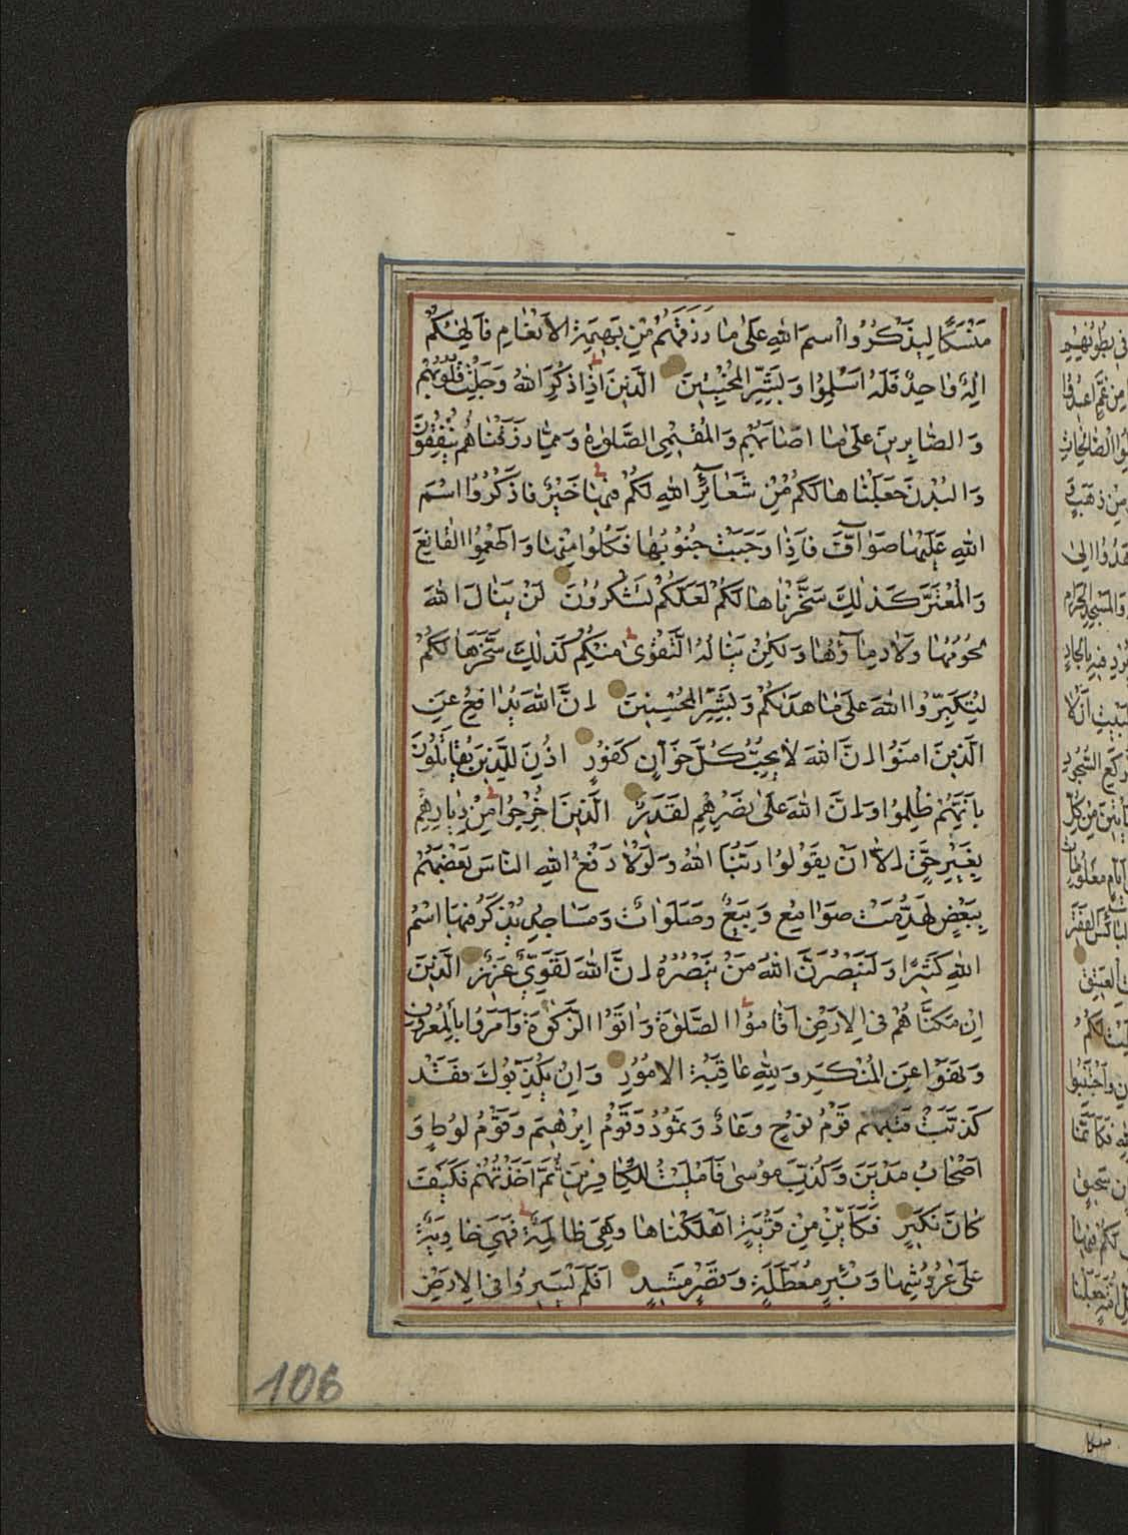 مَنْسَكًا لِيَذْكُرُوا اسْمَ اللهِ عَلَىٰ مَا رَزَقَهُمْ مِنْ بَهِيمَةِ الْأَنْعَامِ فَإِلٰهُكُمْ
إِلٰهٌ وَاحِدٌ فَلَهُ أَسْلِمُوا وَبَشِّرِ الْمُخْبِتِينَ الَّذِينَ إِذَا ذُكِرَ اللهُ وَجِلَتْ قُلُوبُهُمْ
وَالصَّابِرِينَ عَلَىٰ مَا أَصَابَهُمْ وَالْمُقِيمِي الصَّلَوٰةِ وَمِمَّا رَزَقْنَاهُمْ يُنْفِقُونَ
وَالْبُدْنَ جَعَلْنَاهَا لَكُمْ مِنْ شَعَآئِرِ اللهِ لَكُمْ فِيهَا خَيْرٌ فَاذْكُرُوا اسْمَ
اللهِ عَلَيْهَا صَوَآفَّ فَإِذَا وَجَبَتْ جُنُوبُهَا فَكُلُوا مِنْهَا وَأَطْعِمُوا الْقَانِعَ
وَالْمُعْتَرَّ كَذٰلِكَ سَخَّرْنَاهَا لَكُمْ لَعَلَّكُمْ تَشْكُرُونَ لَنْ يَنَالَ اللهَ
لُحُومُهَا وَلَا دِمَآؤُهَا وَلٰكِنْ يَنَالُهُ التَّقْوَىٰ مِنْكُمْ كَذٰلِكَ سَخَّرَهَا لَكُمْ
لِتُكَبِّرُوا اللهَ عَلَىٰ مَا هَدَاكُمْ وَبَشِّرِ الْمُحْسِنِينَ إِنَّ اللهَ يُدَافِعُ عَنِ
الَّذِينَ اٰمَنُوا إِنَّ اللهَ لَا يُحِبُّ كُلَّ خَوَّانٍ كَفُورٍ أُذِنَ لِلَّذِينَ يُقَاتَلُونَ
بِأَنَّهُمْ ظُلِمُوا وَإِنَّ اللهَ عَلَىٰ نَصْرِهِمْ لَقَدِيرٌ الَّذِينَ أُخْرِجُوا مِنْ دِيَارِهِمْ
بِغَيْرِ حَقٍّ إِلَّا أَنْ يَقُولُوا رَبُّنَا اللهُ وَلَوْلَا دَفْعُ اللهِ النَّاسَ بَعْضَهُمْ
بِبَعْضٍ لَهُدِّمَتْ صَوَامِعُ وَبِيَعٌ وَصَلَوَاتٌ وَمَسَاجِدُ يُذْكَرُ فِيهَا اسْمُ
اللهِ كَثِيرًا وَلَيَنْصُرَنَّ اللهُ مَنْ يَنْصُرُهُ إِنَّ اللهَ لَقَوِيٌّ عَزِيزٌ الَّذِينَ
إِنْ مَكَّنَّاهُمْ فِي الْأَرْضِ أَقَامُوا الصَّلَوٰةَ وَاٰتَوُا الزَّكَوٰةَ وَأَمَرُوا بِالْمَعْرُوفِ
وَنَهَوْا عَنِ الْمُنْكَرِ وَلِلّٰهِ عَاقِبَةُ الْأُمُورِ وَإِنْ يُكَذِّبُوكَ فَقَدْ
كَذَّبَتْ قَبْلَهُمْ قَوْمُ نُوحٍ وَعَادٌ وَثَمُودُ وَقَوْمُ إِبْرٰهِيمَ وَقَوْمُ لُوطٍ وَ
أَصْحَابُ مَدْيَنَ وَكُذِّبَ مُوسَىٰ فَأَمْلَيْتُ لِلْكَافِرِينَ ثُمَّ أَخَذْتُهُمْ فَكَيْفَ
كَانَ نَكِيرِ فَكَأَيِّنْ مِنْ قَرْيَةٍ أَهْلَكْنَاهَا وَهِيَ ظَالِمَةٌ فَهِيَ خَاوِيَةٌ
عَلَىٰ عُرُوشِهَا وَبِئْرٍ مُعَطَّلَةٍ وَقَصْرٍ مَشِيدٍ أَفَلَمْ يَسِيرُوا فِي الْأَرْضِ
106